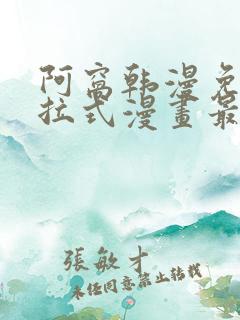 阿窝韩漫免
拉式漫畫最
張敏才
未经同意禁止转载